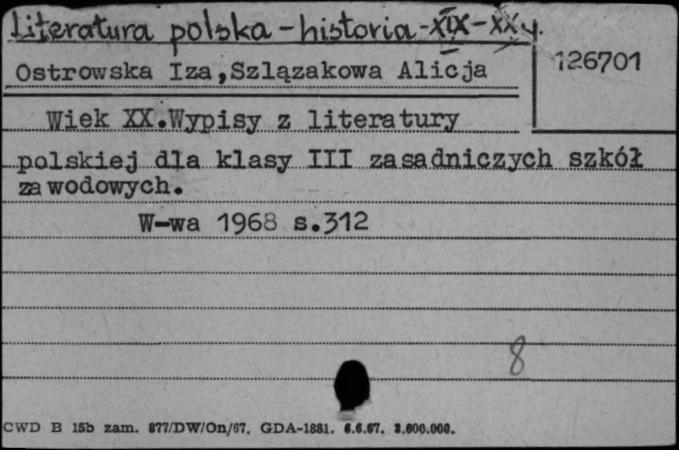 Literatura polska - historia - XIX - XX w.
126701
Ostrowska Iza, Szlązakowa Alicja
Wiek XX. Wypisy z literatury
polskiej dla klasy III zasadniczych szkół
zawodowych.
W-wa 1968 s.312
8
CWD B 15b zam. 877/DW/On/67. GDA-1881. 6.6.67. 3.600.000.